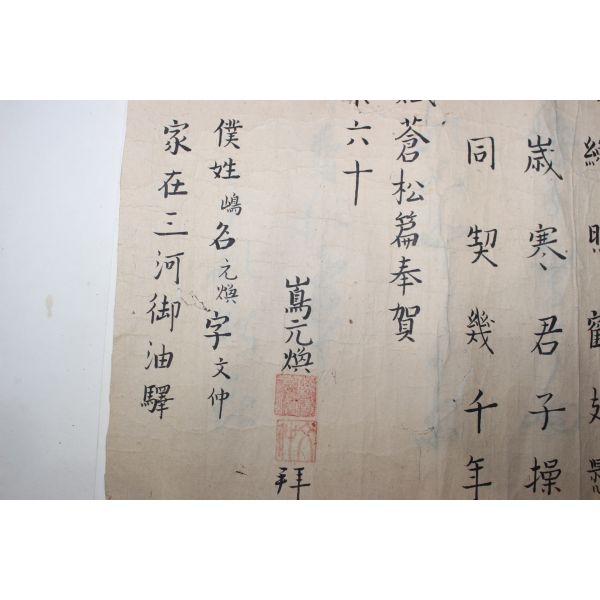 歳寒君子操
同契幾千年
蒼松篇奉賀
六十
嶌元煥 拜
僕姓嶋名元煥字文仲
家在三河御油驛